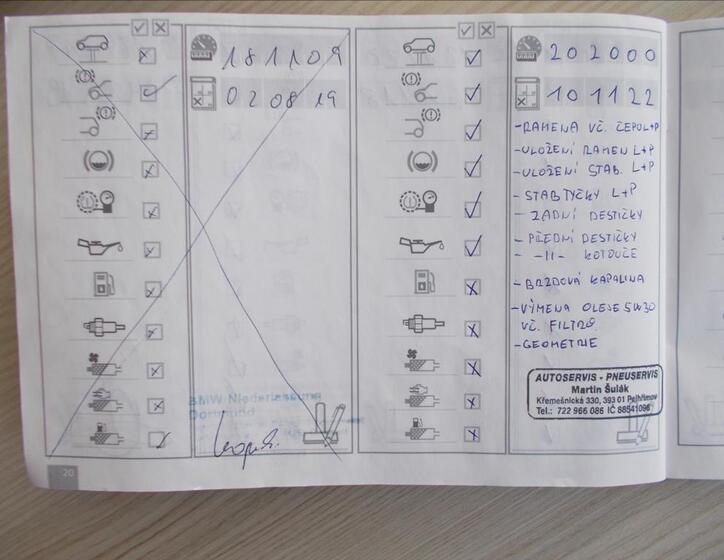 181109
020819
BMW Niederlassung
Dortmund
20
202000
101122
-RAMENA VČ. ČEPŮ L+P
-ULOŽENÍ RAMEN L+P
-ULOŽENÍ STAB. L+P
-STAB TYČKY L+P
- ZADNÍ DESTIČKY
- PŘEDNÍ DESTIČKY
- -II- KOTOUČE
-BRZDOVÁ KAPALINA
-VÝMĚNA OLEJE 5W30
VČ. FILTRŮ
-GEOMETRIE
AUTOSERVIS - PNEUSERVIS
Martin Šulák
Křemešnická 330, 393 01 Pelhřimov
Tel.: 722 966 086 IČ 88541096